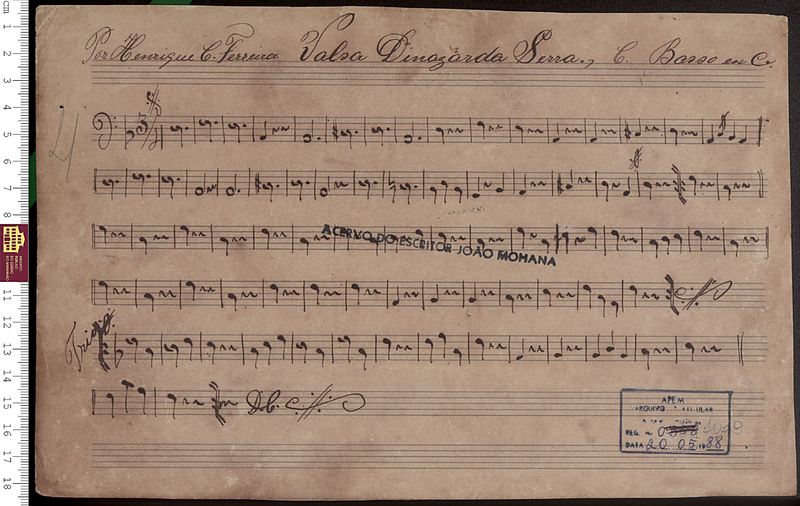 Por Henrique C. Ferreira Valsa Dinazarda Serra., C. Basso en C.
4
ACERVO DO ESCRITOR JOÃO MOHANA
Trigo
D.C.
APEM
ARQUIVO
REG.
DATA 20 05 1988
cm 1 2 3 4 5 6 7 8 11 12 13 14 15 16 17 18